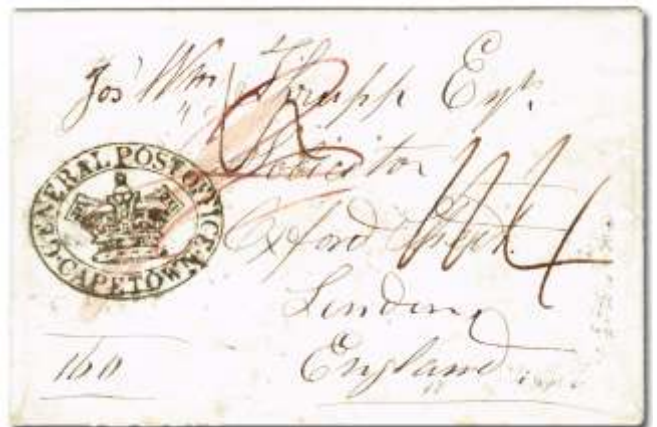 Jos Wm Thrupp Esqr.
Solicitor
Oxford Street
London
England
GENERAL POST OFFICE
CAPETOWN
160